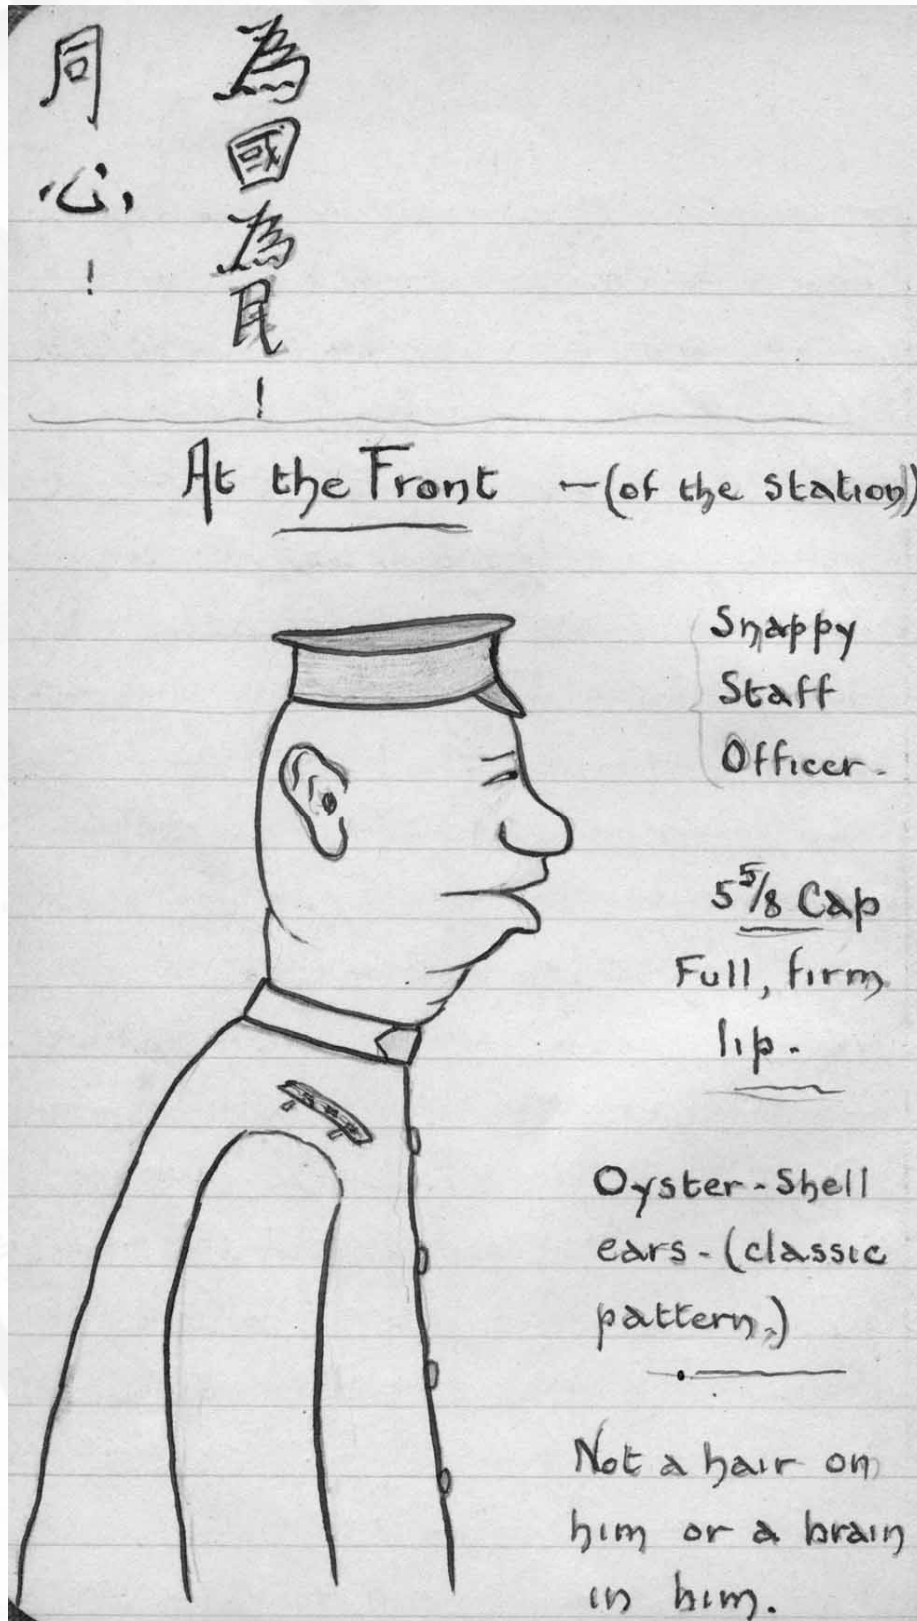 為國為民!
同心!
At the Front - (of the Station)
Snappy
Staff
Officer.
5 5/8 Cap
Full, firm
lip.
Oyster-Shell
ears - (classic
pattern.)
Not a hair on
him or a brain
in him.